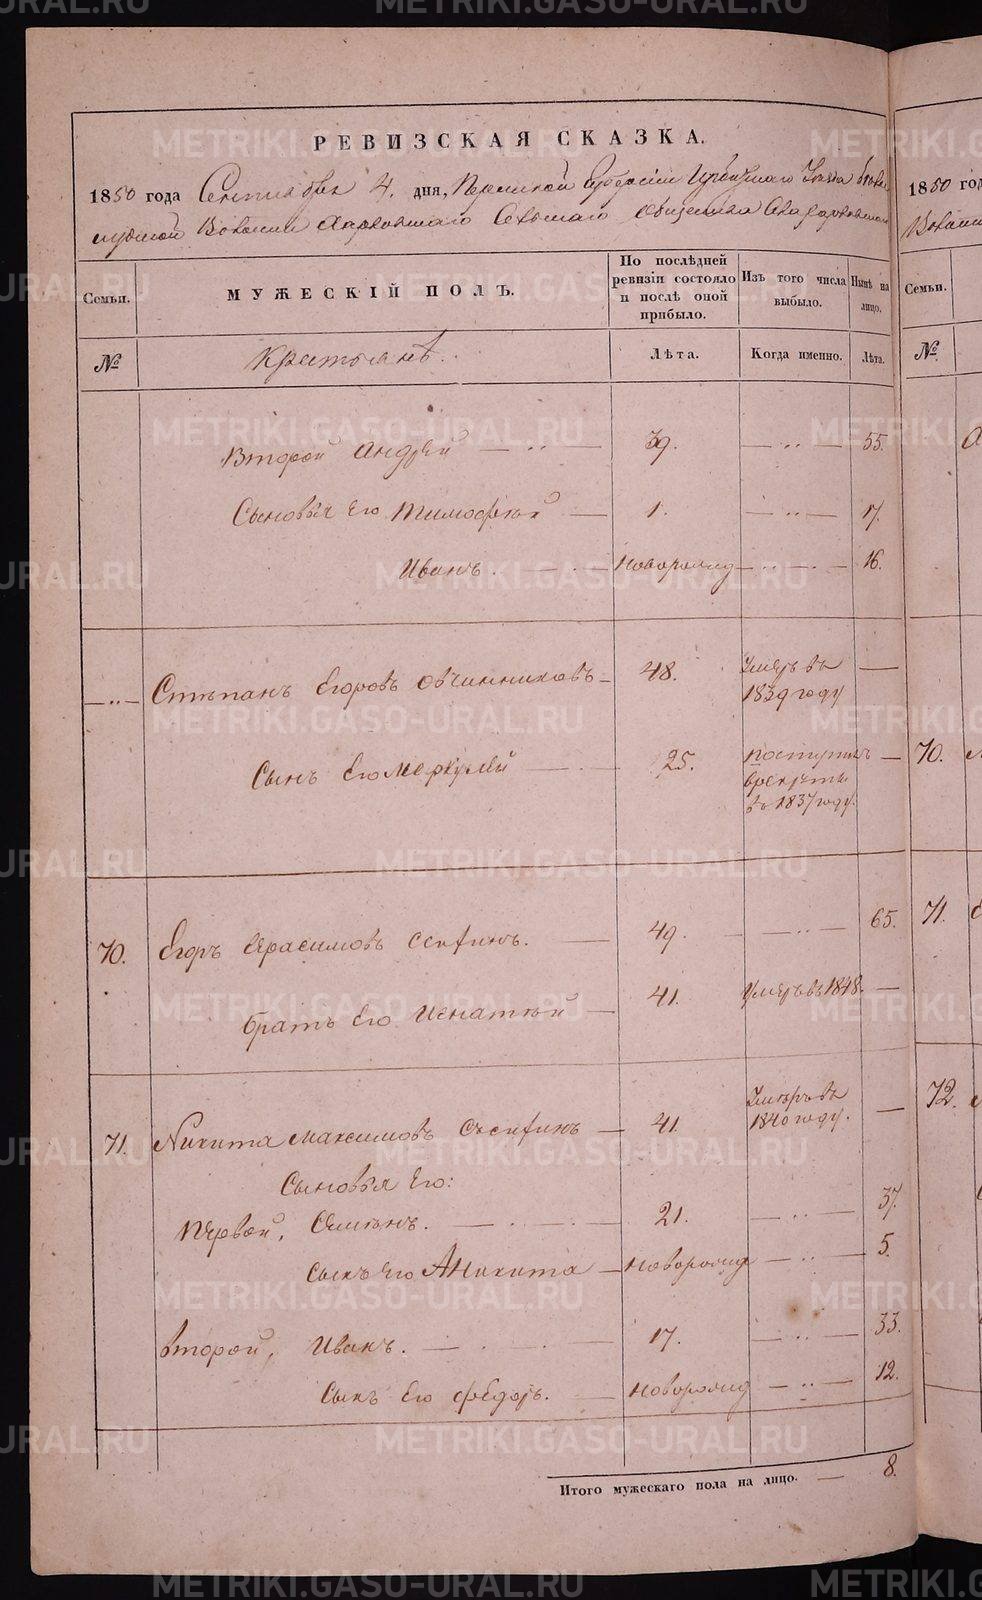 METRIKI.GASO-URAL.RU
РЕВИЗСКАЯ СКАЗКА.
1850 года Сентября 4. дня, Пермской Губернии Ирбитскаго Уезда
Волости Харловскаго Сельскаго Общества
Семьи.
МУЖЕСКІЙ ПОЛЪ.
По послѣдней ревизіи состояло и послѣ оной прибыло.
Изъ того числа выбыло.
Нынѣ на лицо.
№
Крестьянѣ.
Лѣта.
Когда именно.
Лѣта.
Второй Андрей — „ — 39. — „ — 55.
Сыновья Его Тимофей — 1. — „ — 17.
Иванъ. — новорожд — „ — 16.
— „ — Степанъ Егоровъ Овчинниковъ — 48. Умеръ въ 1839 году —
Сынъ Его Меркурей — 25. поступилъ в рекруты въ 1837 году. —
70. Егоръ Герасимовъ — 49. — „ — 65.
братъ Его Игнатей — 41. Умеръ въ 1848. —
71. Никита Максимовъ — 41. Умеръ въ 1840 году. —
Сыновья Его:
Первой, Семенъ. — 21. — „ — 37.
Сынъ Его Никита — новорожд — „ — 5.
Второй, Иванъ. — 17. — „ — 33.
Сынъ Его Федоръ. — новорожд — „ — 12.
Итого мужескаго пола на лицо. — 8.
1850 год
Семьи.
№
70.
71.
72.